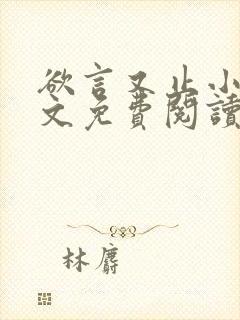 欲言又止小
文免費閱讀
林麝